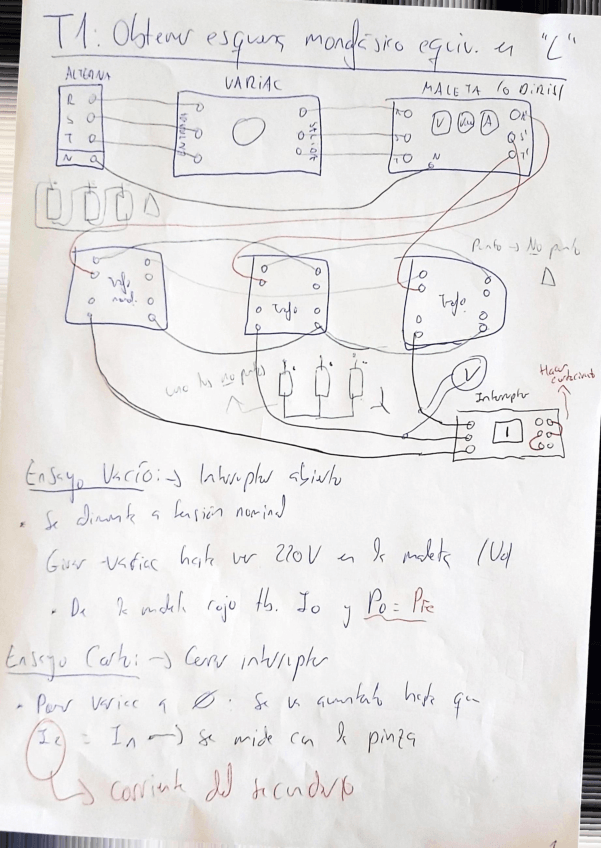 T1: Obtener esquema monofásico equiv. en "L"
ALTERNA
VARIAC
MALETA
R
S
T
N
ENTRADA
SALIDA
R
S
T
N
V
A
R'
S'
T'
Punto → No punto
Δ
Δ
Trafo
Trafo
Trafo
Uno los no puntos
V
Interruptor
I
Hacer cortocircuito
Ensayo Vacío: → Interruptor abierto
• Se alimenta a tensión nominal
Girar variac hasta ver 220V en la maleta
• De la maleta cojo tb. Io y Po = PFe
Ensayo Corto: → Cerrar interruptor
• Poner variac a Ø. Se va aumentando hasta que
= In → se mide con la pinza
corriente del secundario